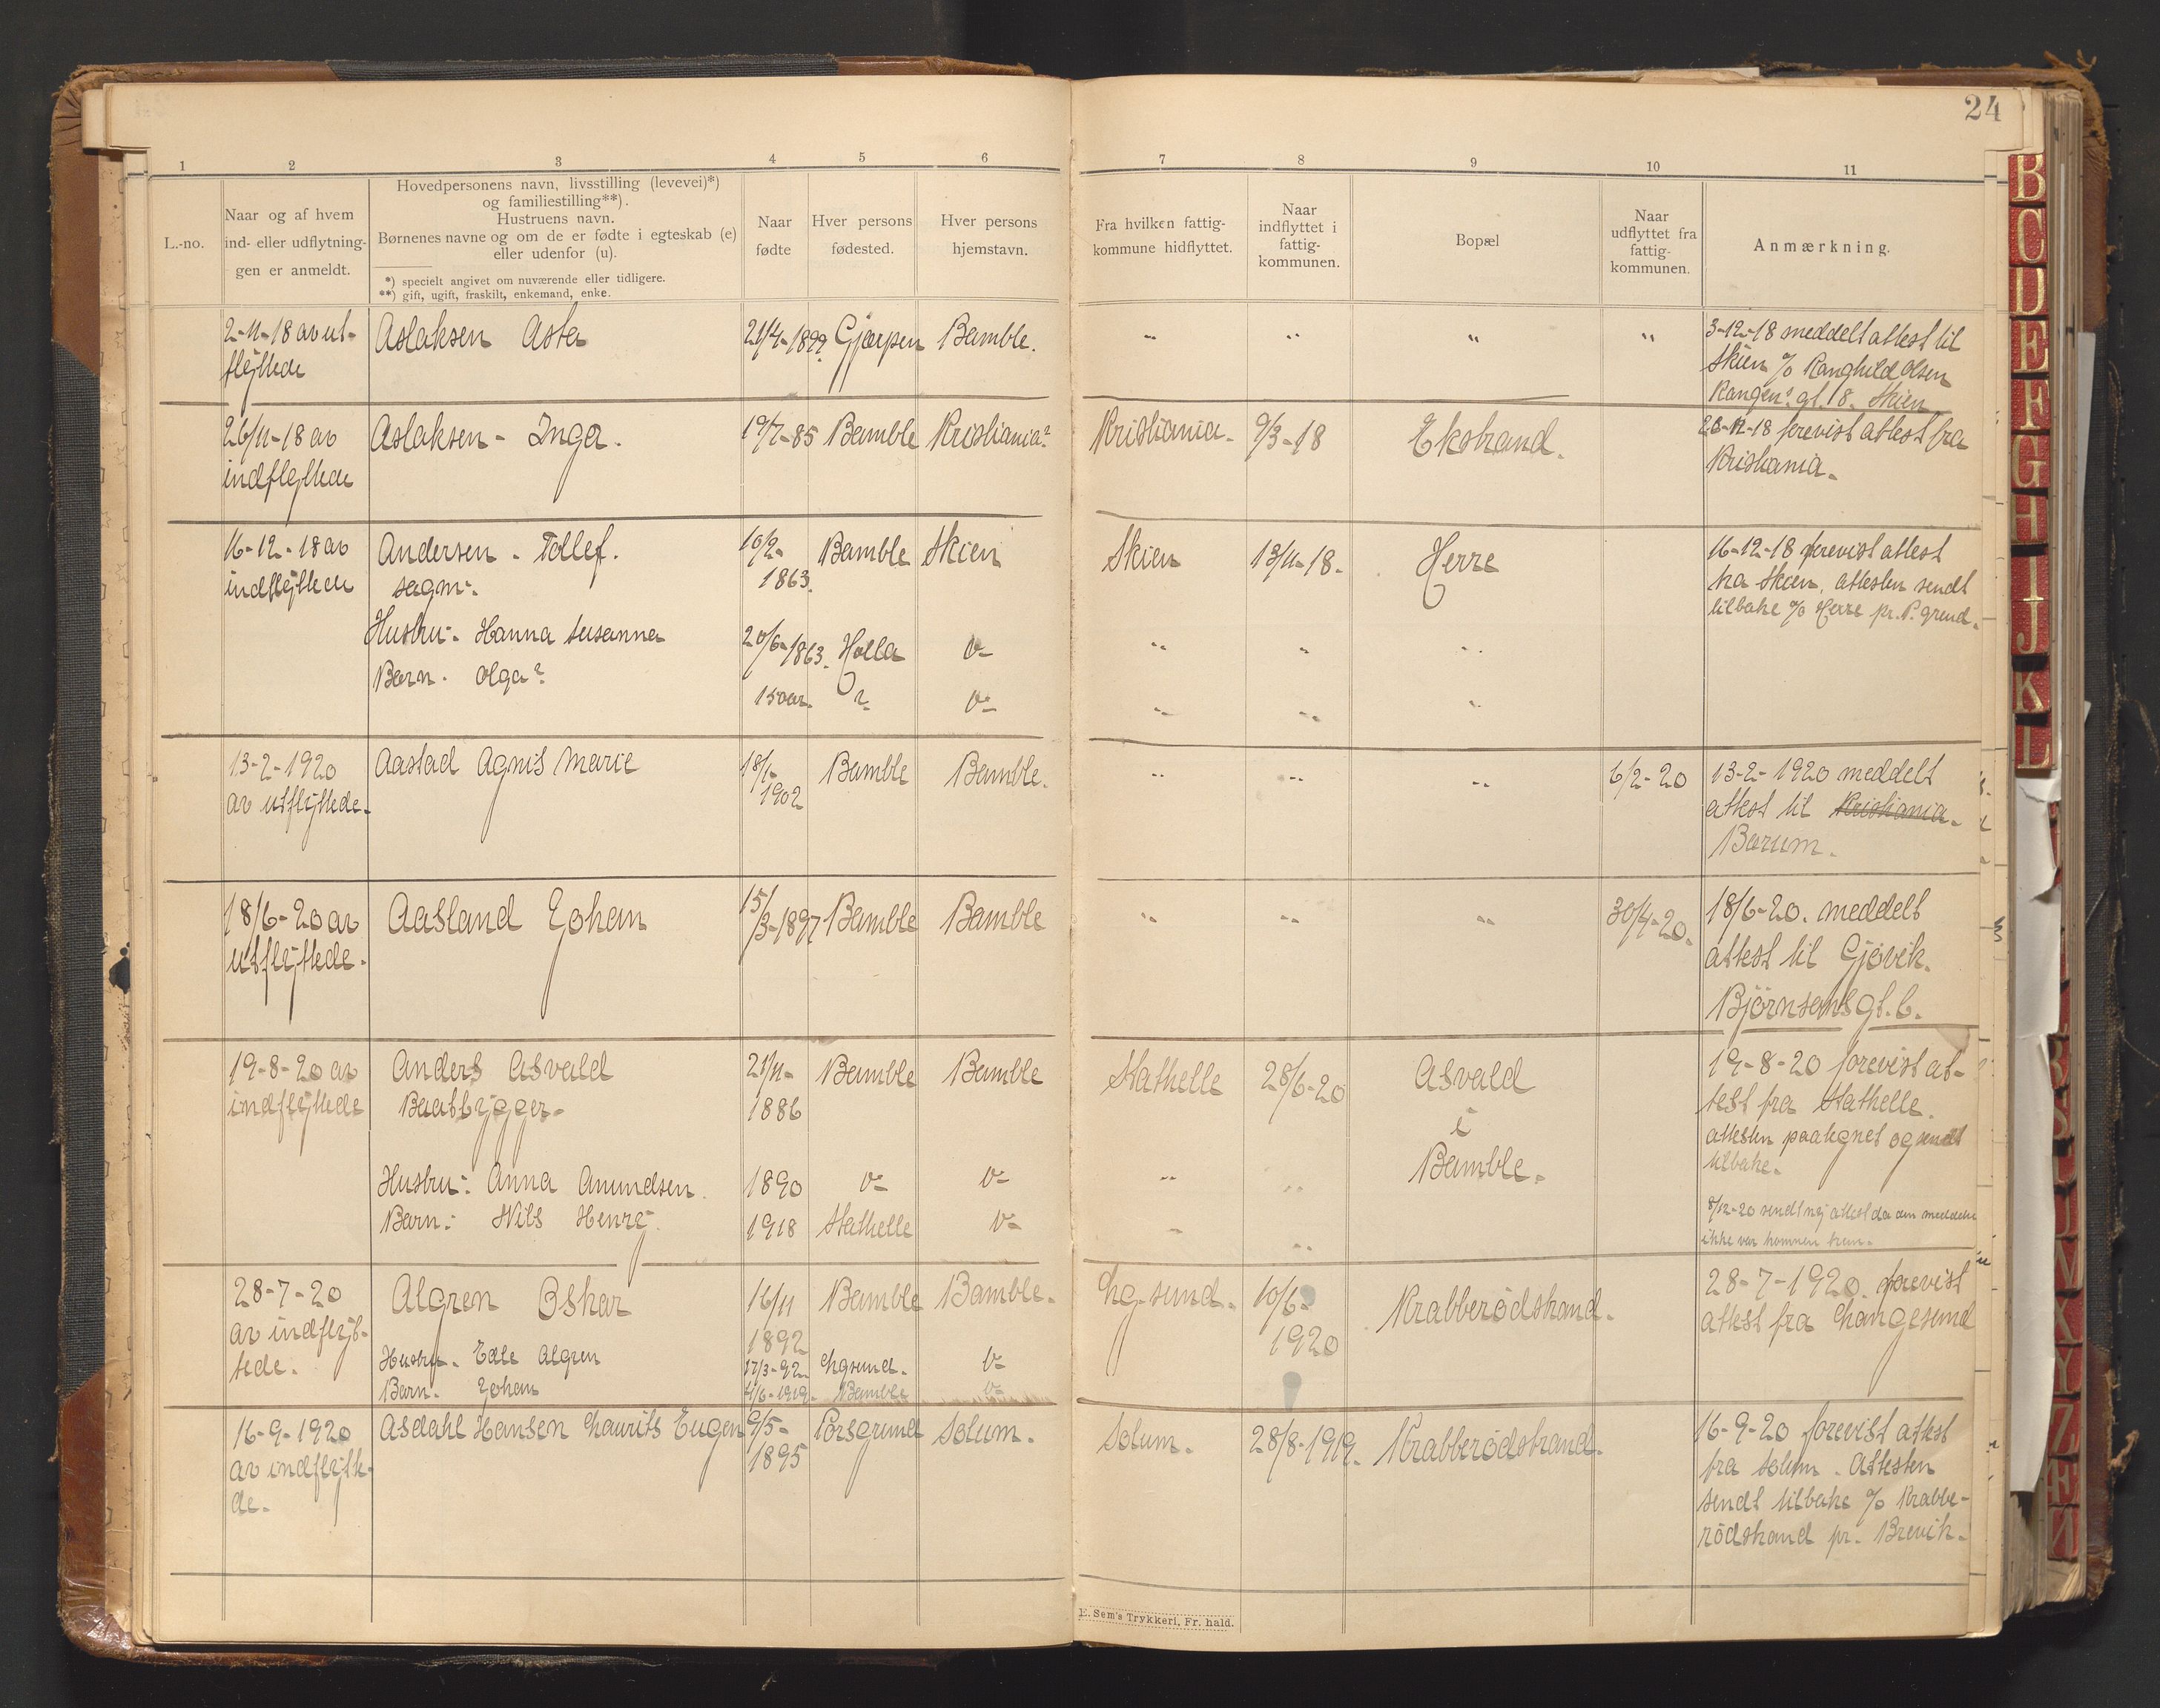 24
1 2 3 4 5 6 7 8 9 10 11
L.-no.
Naar og af hvem
ind- eller udflytnin-
gen er anmeldt.
Hovedpersonens navn, livsstilling (levevei)*)
og familiestilling**).
Hustruens navn.
Børnenes navne og om de er fødte i egteskab (e)
eller udenfor (u).
*) specielt angivet om nuværende eller tidligere.
**) gift, ugift, fraskilt, enkemand, enke.
Naar
fødte
Hver persons
fødested.
Hver persons
hjemstavn.
Fra hvilken fattig-
kommune hidflyttet.
Naar
indflyttet i
fattig-
kommunen.
Bopæl
Naar
udflyttet fra
fattig-
kommunen.
Anmærkning.
2-11-18 av ut-
flyttede
Aslaksen Asta
21/4-1899
Gjerpen
Bamble.
" " " "
3-12-18 meddelt attest til
Skien % Ranghild Olsen
gt. 18. Skien
26/11-18 av
indflyttede
Aslaksen - Inga.
19/7-85
Bamble
Kristiania?
Kristiania.
9/3-18
Ekstrand.
26-11-18 forevist attest fra
Kristiania.
16-12-18 av
indflyttede
Andersen - Tollef.
sagm:
10/2-
1863.
Bamble
Skien
Skien
13/11-18.
Herre
16-12-18 forevist attest
fra Skien, attesten sendt
tilbake % Herre pr. P.grund.
Hustru: Hanna Susanna
20/6-1863.
Holla
v-
" " "
Barn. Olga?
15 aar.
?
v-
" " "
13-2-1920
av utflyttede.
Aastad Agnis Marie
18/1-
1902
Bamble
Bamble.
" " "
6/2-20
13-2-1920 meddelt
attest til Kristiania.
Bærum.
18/6-20 av
utflyttede.
Aasland Johan
15/3-1897
Bamble
Bamble
" " "
30/4-20.
18/6-20. meddelt
attest til Gjøvik.
Bjørnsons gt. 6.
19-8-20 av
indflyttede
Anders Asvald
Baatbygger.
21/11-
1886
Bamble
Bamble
Stathelle
28/6-20
Asvald
i
Bamble.
19-8-20 forevist at-
test fra Stathelle.
attesten paategnet og sendt
tilbake.
Hustru: Anna Amundsen.
1890
v-
v-
" "
Barn: Nils Henry.
1918
Stathelle
v-
" "
8/12-20 sendt ny attest da den meddelte
ikke var kommen frem.
28-7-20
av indflyt-
tede.
Algren Oskar
16/11
1892
Bamble
Bamble.
Lg.sund.
10/6-
1920
Krabberødstrand.
28-7-1920. forevist
attest fra Langesund
Hustru. Edle Algren
17/3-92.
Lgsund.
v-
Barn. Johan
4/6-1919.
Bamble
v-
16-9-1920
av indflytte-
de.
Asdahl Hansen Laurits Eugen
9/5-
1895
Porsgrund
Solum.
Solum.
28/8-1919.
Krabberødstrand.
16-9-20 forevist attest
fra Solum. Attesten
sendt tilbake % Krabbe-
rødstrand pr. Brevik.
E. Sem's Trykkeri, Fr. hald.
B
C
D
E
F
G
H
I
J
K
L
V
X
Y
Z
Æ